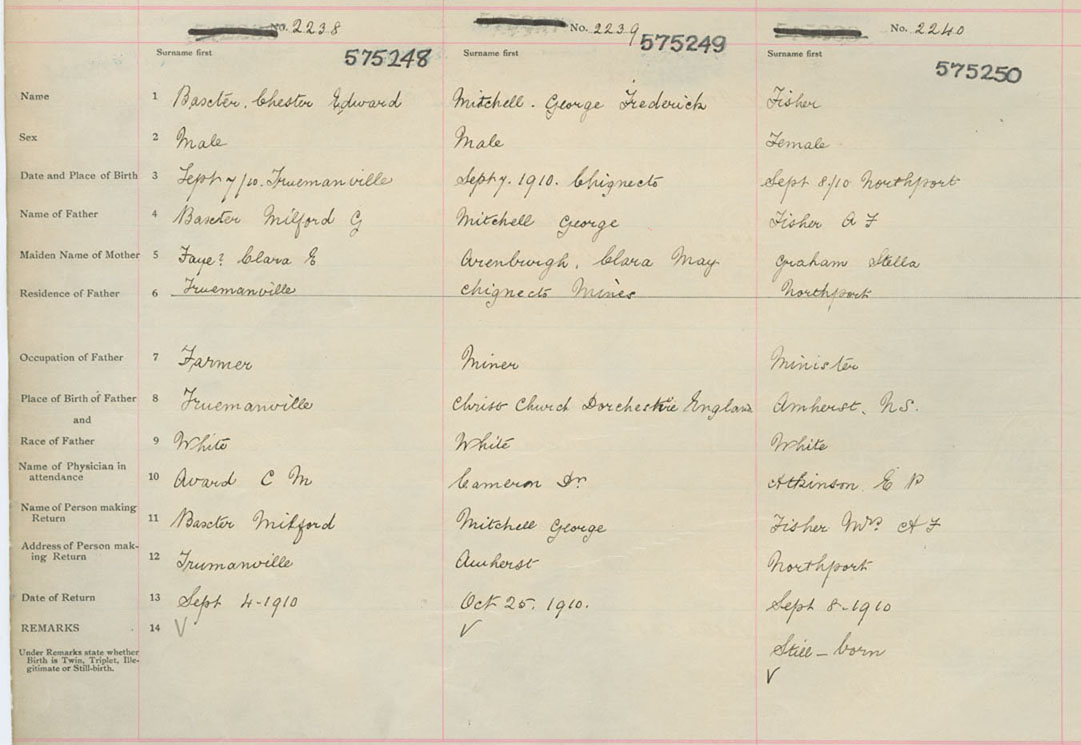 No. 2238 No. 2239 No. 2240
Surname first 575248 Surname first 575249 Surname first 575250
Name 1 Baxter, Chester Edward Mitchell. George Frederick Fisher
Sex 2 Male Male Female
Date and Place of Birth 3 Sept 7/10. Truemanville Sept 7. 1910. Chignecto Sept 8/10 Northport
Name of Father 4 Baxter Milford G Mitchell George Fisher A F
Maiden Name of Mother 5 Faye? Clara E Arenburgh, Clara May Graham Stella
Residence of Father 6 Truemanville Chignecto Mines Northport
Occupation of Father 7 Farmer Miner Minister
Place of Birth of Father 8 Truemanville Christ Church Dorcheshire England Amherst, N.S.
and
Race of Father 9 White White White
Name of Physician in
attendance 10 Avard C M Cameron Dr Atkinson E P
Name of Person making
Return 11 Baxter Milford Mitchell George Fisher Mrs A F
Address of Person mak-
ing Return 12 Trumanville Amherst Northport
Date of Return 13 Sept 4-1910 Oct 25. 1910. Sept 8-1910
REMARKS 14 V V
Under Remarks state whether
Birth is Twin, Triplet, Ille-
gitimate or Still-birth.
Still-born
V